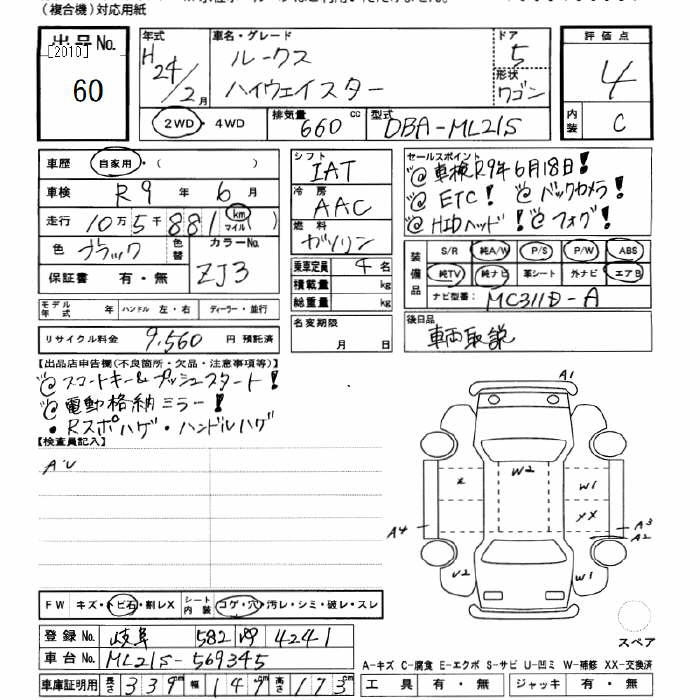 (複合機)対応用紙
出品No.
[2010]
60
年式
H24/2月
車名・グレード
ルークス
ハイウェイスター
ドア
5
形状
ワゴン
評価点
4
内装
C
2WD・4WD
排気量
660cc
型式
DBA-ML21S
車歴 自家用・( )
車検 R9年6月
走行 10万5千881(km マイル)
色 ブラック 色替 カラーNo.
ZJ3
保証書 有・無
モデル年式 年 ハンドル 左・右 ディーラー・並行
リサイクル料金 9,560円 預託済
シフト
IAT
冷房
AAC
燃料
ガソリン
乗車定員 4名
積載量 kg
総重量 kg
名変期限
月 日
セールスポイント
@車検R9年6月18日!
@ETC! @バックカメラ!
@HIDヘッド! @フォグ!
装備品
S/R 純A/W P/S P/W ABS
純TV 純ナビ 革シート 外ナビ エアB
ナビ型番: MC311D-A
後日品
車両取説
【出品店申告欄(不良箇所・欠品・注意事項等)】
@スマートキー&プッシュスタート!
@電動格納ミラー!
・Rスポハゲ・ハンドルハゲ
【検査員記入】
A'U
A1
W2
W1
YX
A4
A3
A2
U2
W1
スペア
FW キズ・トビ石・割レX シート内装 コゲ・穴・汚レ・シミ・破レ・スレ
登録No. 岐阜 582 4241
車台No. ML21S-569345
車庫証明用 長さ339cm 幅147cm 高さ173cm
A-キズ C-腐食 E-エクボ S-サビ U-凹ミ W-補修 XX-交換済
工具 有・無 ジャッキ 有・無